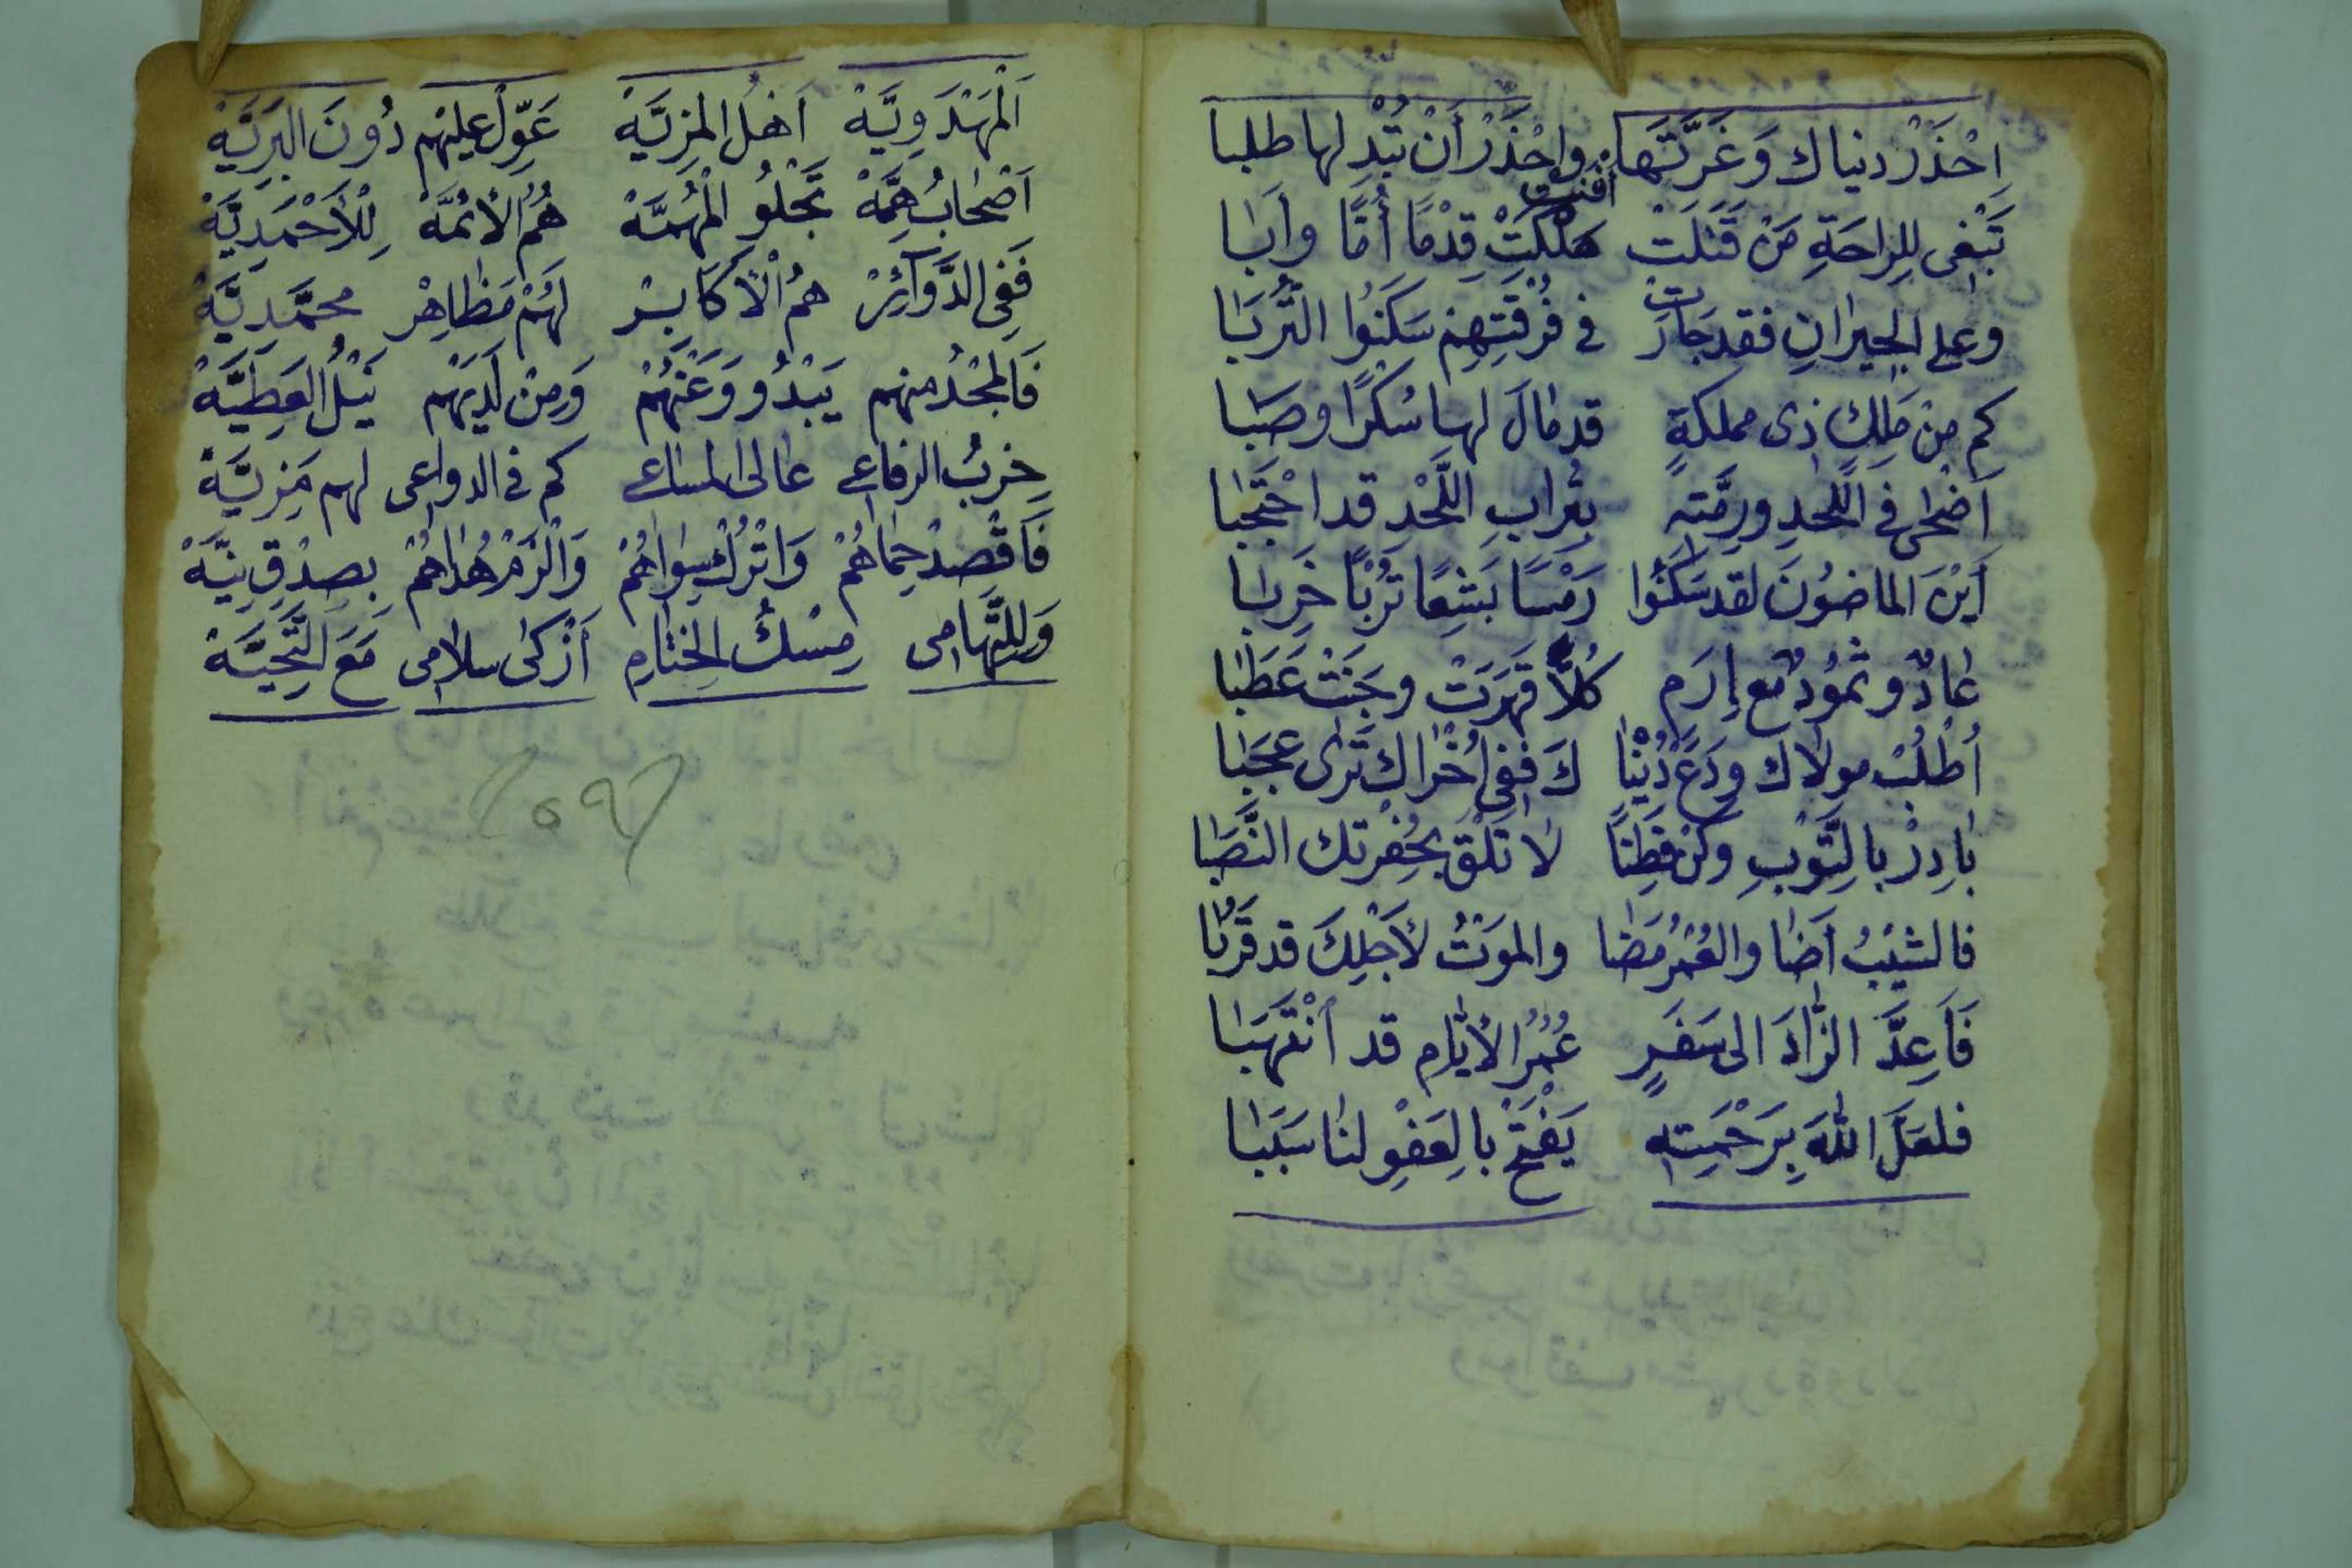 اِحْذَرْ دنياك وَغَرَّتَهَا واحْذَرْ أَنْ تُبْدِ لها طلبا
تَبْغِى لِلرِاحَةِ مَنْ قَتَلَتْ أفنت هَلَكَتْ قِدْمًا أُمًّا وأَبَا
وعلى الجيرانِ فقد جَارَت فى فُرْقَتِهِم سَكَنُوا التُّربَا
كم مِنْ مَلِكٍ ذِى مملكةٍ قد مَالَ لها سُكْرًا وصَبَا
اَضْحَى فى اللَّحدِ ورِمَّتهِ بِتُرابِ اللَّحْدِ قد احْتَجَبَا
اَيْنَ الماضُونَ لقد سَكَنُوا رَمْسًا بَشِعًا تُرْبًا خَرِبا
عَادٌ وثمُودٌ مَع إِرَم كُلاًّ قَهَرَتْ وجَنَتْ عَطَبَا
اُطْلُبْ مولاك ودَعْ دُنْيَا كَ فَفِى اُخْرَاكَ تَرَى عجَبَا
بَادِرْ بالتَّوْبِ وكُنْ فَطِنًا لا تَلْقَ بحُفْرتك النَّصَبَا
فالشيْبُ اَضَا والعُمْرُ مَضَا والمَوتُ لأَجْلِكَ قد قَرُبَا
فَاَعِدَّ الزَّادَ الى سَفَرٍ عُمْرُ الأيَّامِ قد اُنْتُهِبَا
فلعَلَّ اللهَ بِرَحْمَتِهِ يَفْتَحْ بالعَفْوِ لنا سَبَبَا
اَلْمَهْدَوِيَّهْ اَهْلُ المَزِيَّهْ عَوِّلْ عليْهم دُونَ البَرِيَّهْ
اَصْحَابُ هِمَّهْ تَجْلُو الْمُهِمَّهْ هُمُ الأئمَّهْ لِلْأَحْمَدِيَّهْ
فَفِى الدَّوَآئِرْ همُ الْأَكَابِرْ لَهُمْ مَظَاهِرْ محمَّدِيَّهْ
فَالمجْدُ منهم يَبْدُو وَعَنْهُمْ وَمِنْ لَدَيْهم نَيْلُ العَطِيَّهْ
حِزبُ الرفاعى عَالى المساعى كم فى الدواعى لهم مَزِيَّهْ
فَاقْصِدْ حِمَاهُمْ وَاتْرُكْ سِوَاهُمْ وَالْزَمْ هُدَاهُمْ بِصِدْقِ نِيَّهْ
وَلِلتِّهَامى مِسْكُ الخِتَامِ اَزْكَى سلامى مَعَ التَّحِيَّهْ